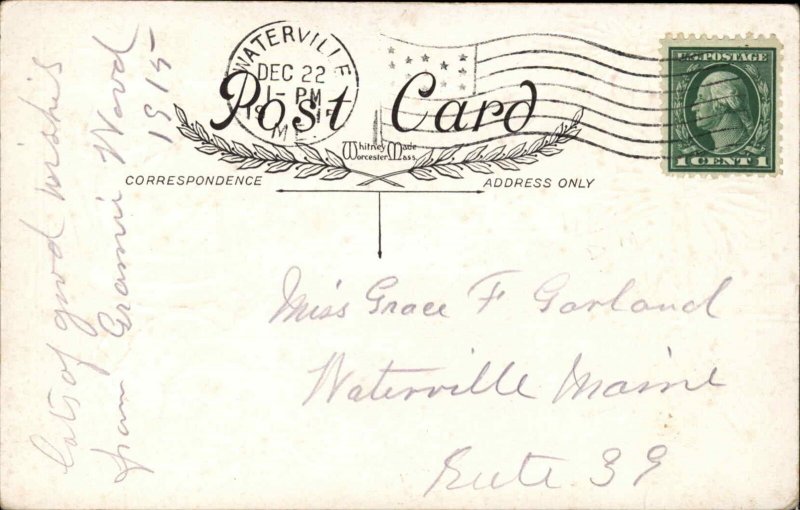 WATERVILLE
DEC 22
1 - PM
ME.
U.S. POSTAGE
1 CENT 1
Post Card
Whitney Made
Worcester Mass.
CORRESPONDENCE
ADDRESS ONLY
Lots of good wishis
from Grammie Ward
1915
Miss Grace F Garland
Waterville Maine
Rute. 39